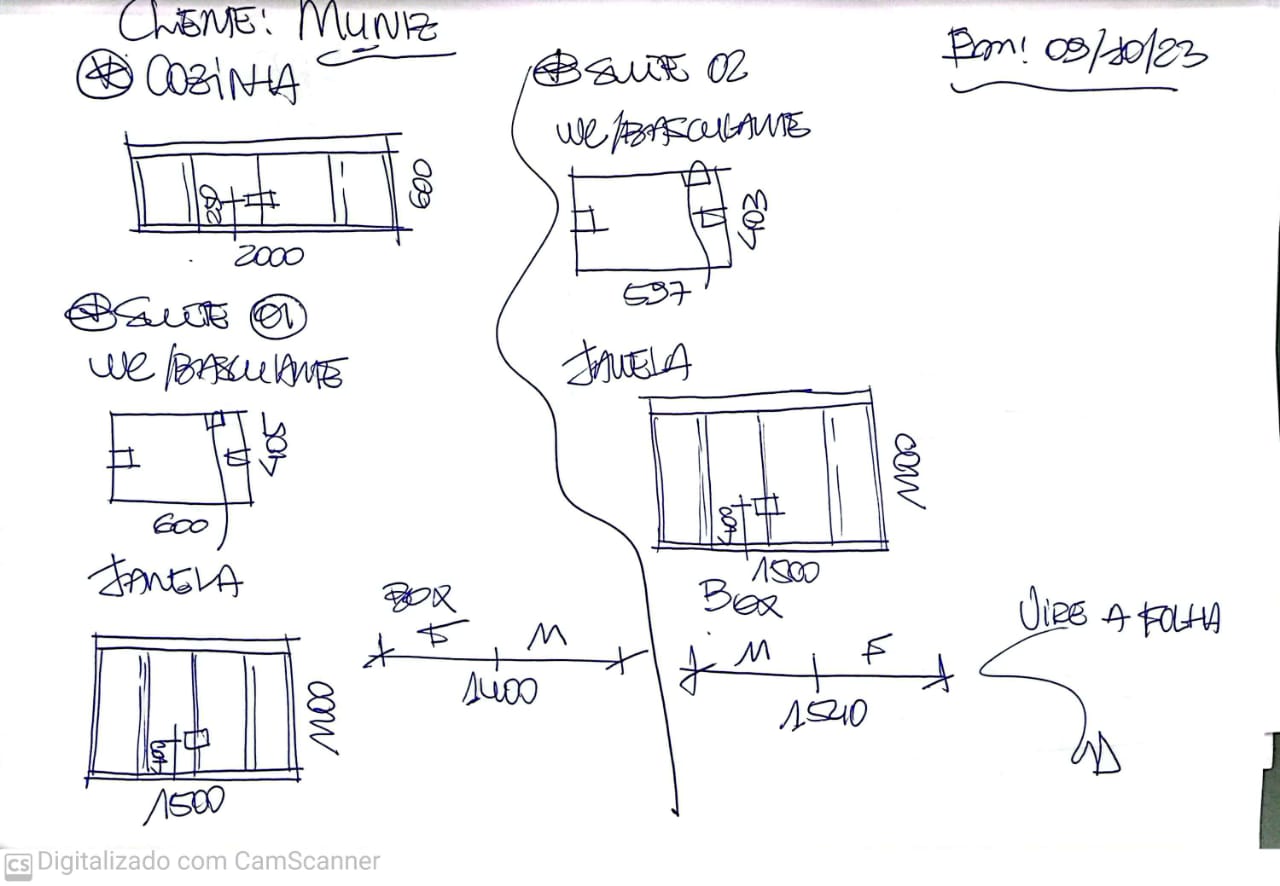 CLIENTE: MUNIZ
Em: 09/10/23
COZINHA
600
2000
SUITE 01
WC/BASCULANTE
600
JANELA
1100
1500
BOX
F M
1400
SUITE 02
WC/BASCULANTE
403
597
JANELA
1100
1500
BOX
M F
1540
VIRE A FOLHA
CS Digitalizado com CamScanner